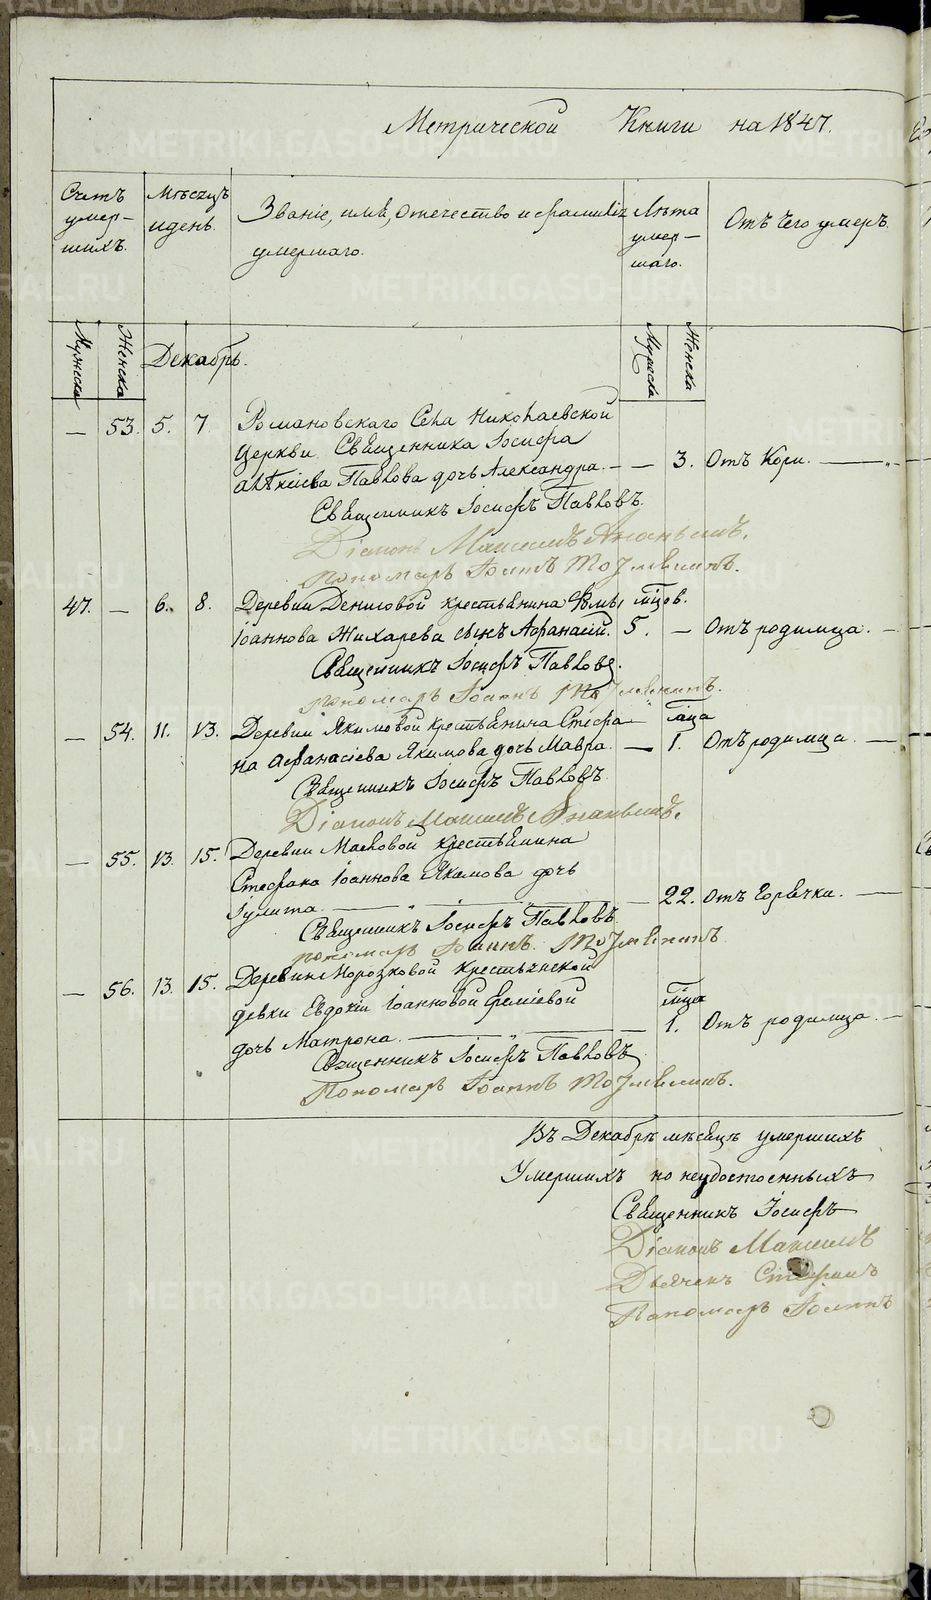 Метрической Книги на 1847.
Счетъ умер-шихъ.
Мѣсяцъ и день.
Званіе, имя, отечество и фамилія умершаго.
Лѣта умер-шаго.
Отъ чего умеръ.
Мужска Женска Декабрь. Мужска Женска
— 53. 5. 7. Романовскаго Села Николаевской
Церкви Священника Іосифа
Алѣксіева Павлова дочь Александра. — — 3. Отъ Кори.
Священникъ Іосифъ Павловъ.
Діаконъ Максимъ
Пономарь Іоаннъ
47. — 6. 8. Деревни Денисовой крестьянина Ѳомы мѣсцов.
Іоаннова Жихарева сынъ Афанасій. 5. — Отъ родимца.
Священникъ Іосифъ Павловъ.
Пономарь Іоаннъ
— 54. 11. 13. Деревни Якимовой крестьянина Стефа- мѣсца
на Афанасіева Якимова дочь Мавра. — 1. Отъ родимца.
Священникъ Іосифъ Павловъ.
Діаконъ Максимъ
— 55. 13. 15. Деревни Масловой крестьянина
Стефана Іоаннова Якимова дочь
Іулита. — 22. Отъ Горячки.
Священникъ Іосифъ Павловъ.
Пономарь Іоаннъ
— 56. 13. 15. Деревни Морозковой Крестьянской
девки Евдокіи Іоанновой мѣсца
дочь Матрона. — 1. Отъ родимца.
Священникъ Іосифъ Павловъ
Пономарь Іоаннъ
Въ Декабрѣ мѣсяцѣ умершихъ
Умершихъ но неудостоенныхъ
Священникъ Іосифъ
Діаконъ Максимъ
Дьячекъ Стефанъ
Пономарь Іоаннъ
METRIKI.GASO-URAL.RU